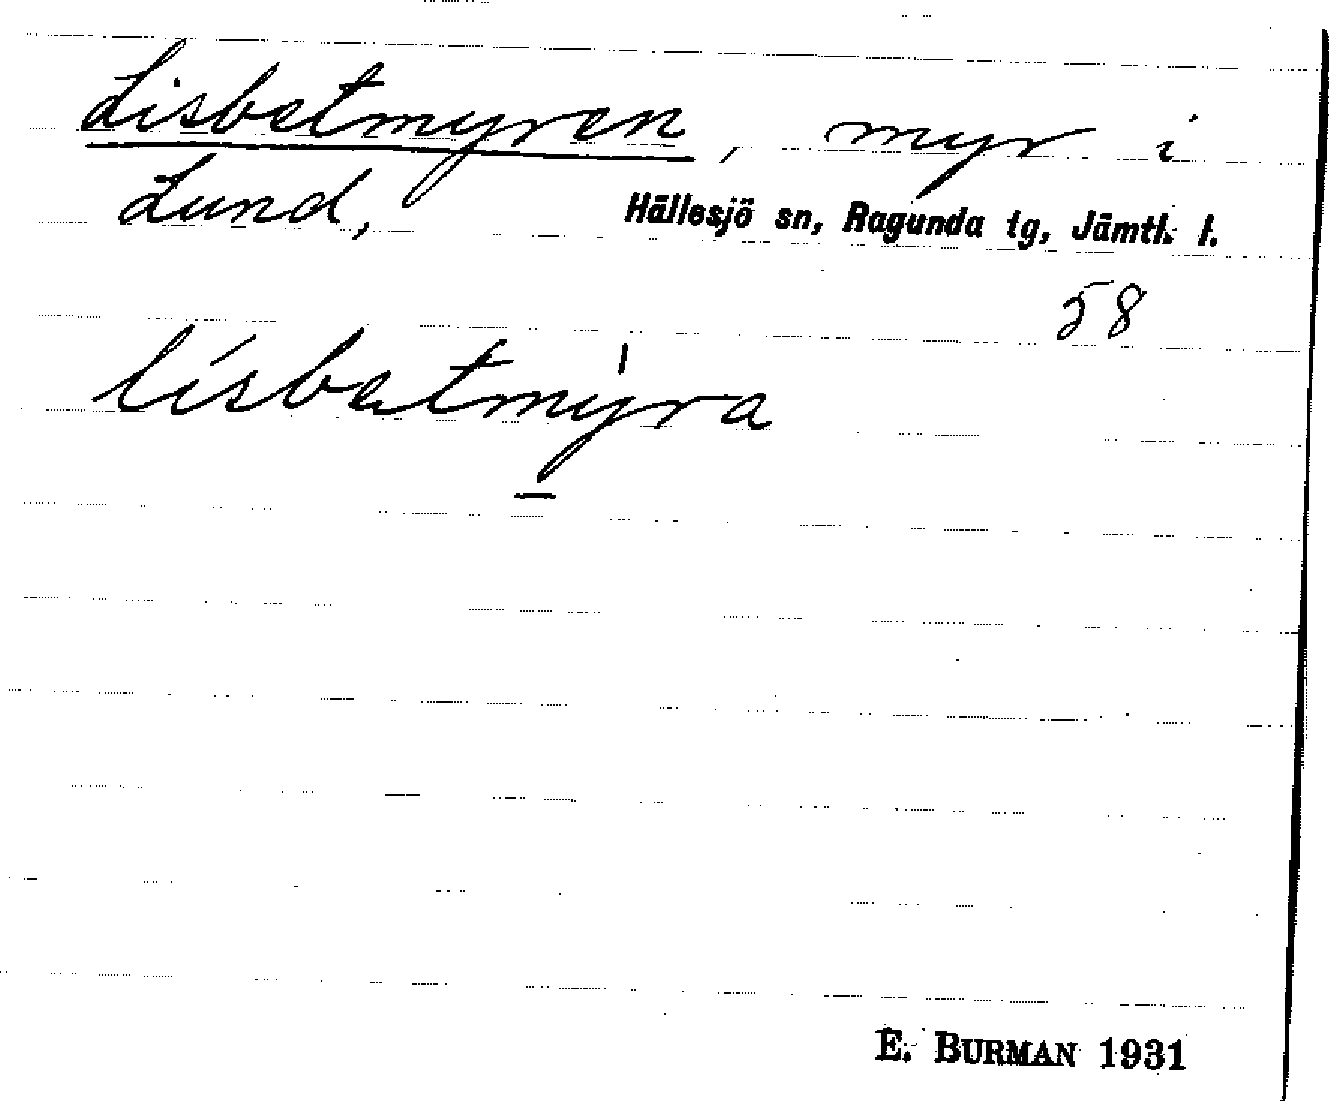 Lisbetmyren, myr i
Lund, Hällesjö sn, Ragunda tg, Jämtl. l.
58
lísbatmyra
E. BURMAN 1931